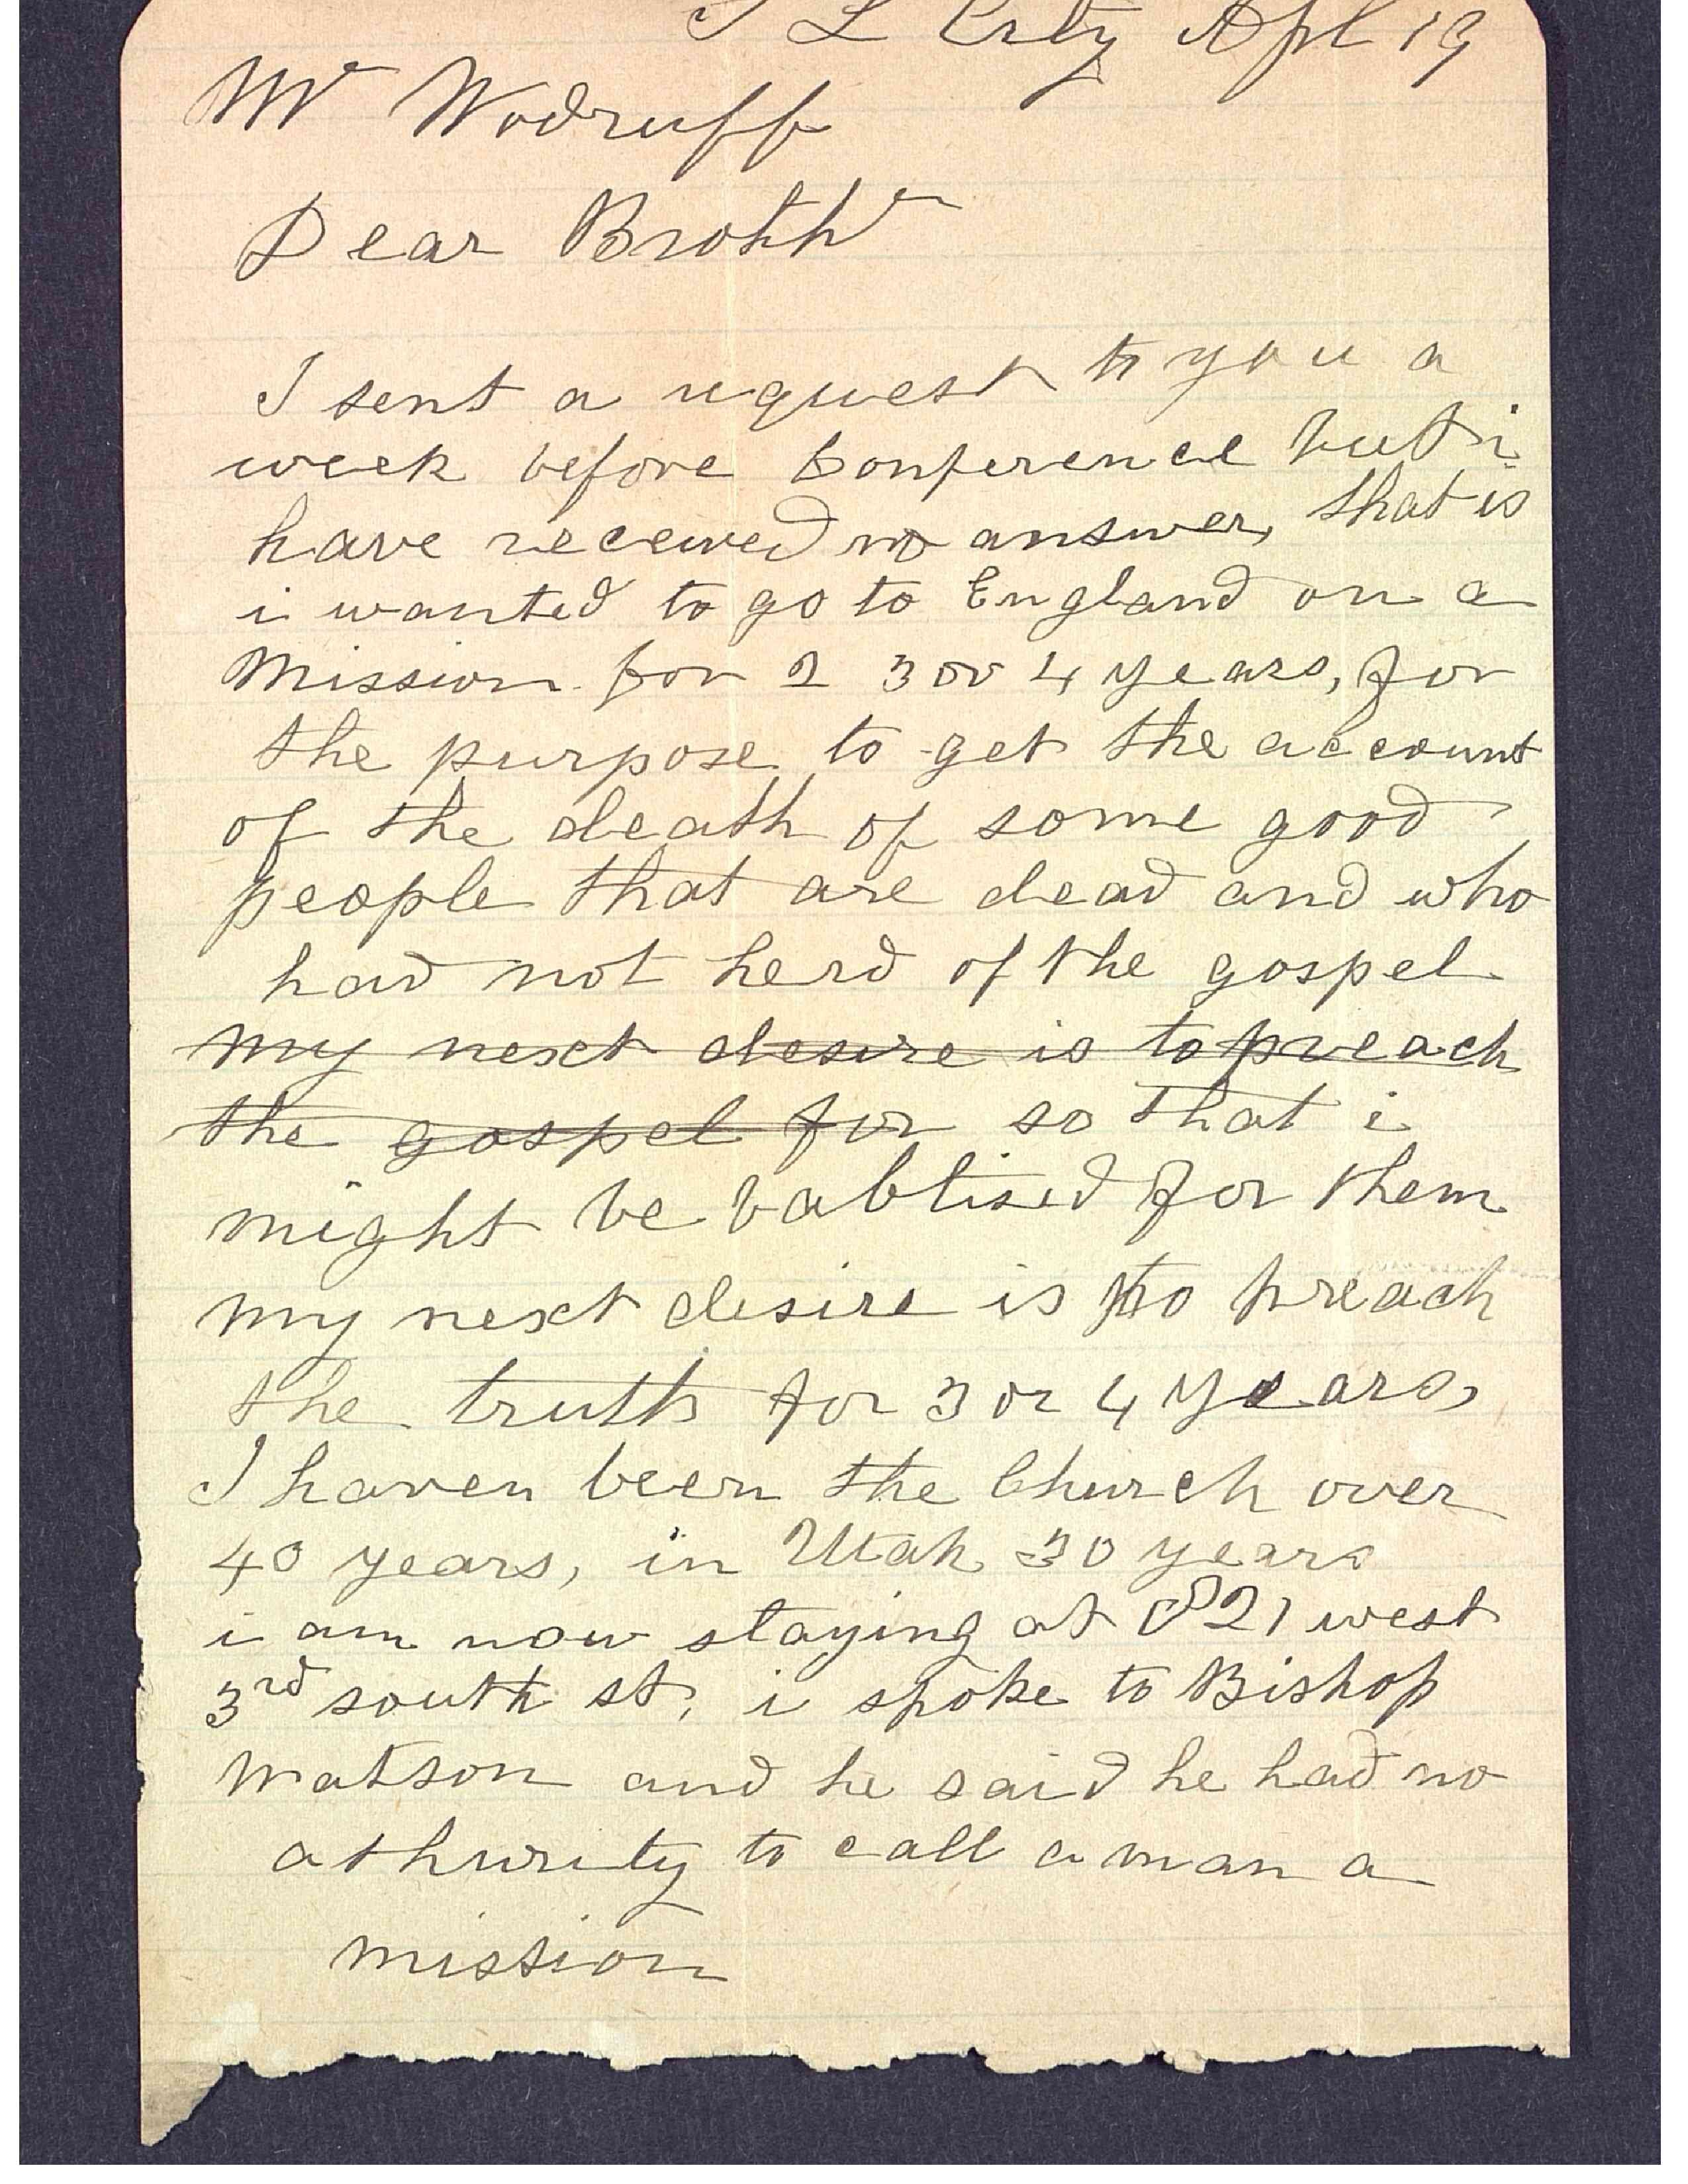 S L City Apl 19
Mr Wodruff
Dear Brothr
I sent a request to you a
week before Conference but i
have received no answer, that is
i wanted to go to England on a
Mission for 2 3 or 4 years, for
the purpose to get the account
of the death of some good
people that are dead and who
had not herd of the gospel
my next desire is to preach
the gospel for so that i
might be babtised for them
my next desire is to preach
the truth for 3 or 4 years,
I haven been the Church over
40 years, in Utah 30 years
i am now staying at 821 west
3rd south st, i spoke to Bishop
Watson and he said he had no
athurity to call a man a
mission